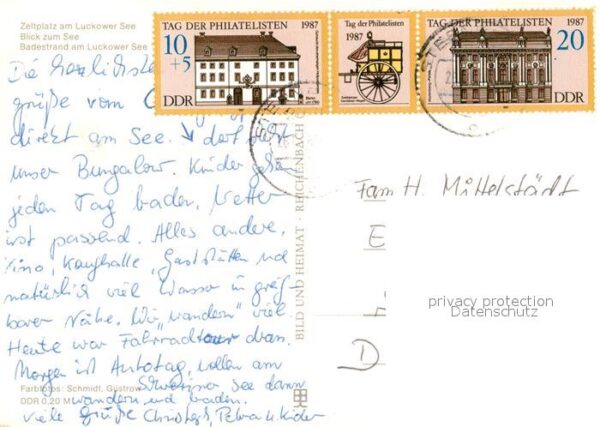 Zeltplatz am Luckower See
Blick zum See
Badestrand am Luckower See
TAG DER PHILATELISTEN 1987
10
+5
DDR
Tag der Philatelisten
1987
TAG DER PHILATELISTEN 1987
20
DDR
Die herzlichsten
grüße vom
direkt am See. dort steht
unser Bungalow. Kinder gehen
jeden Tag baden. Wetter
ist passend. Alles andere,
Kino, Kaufhalle, Gaststätten und
natürlich viel Wasser in greif-
barer Nähe. Wir „wandern" viel.
Heute war Fahrradtour dran.
Morgen ist Autotag, wollen am
Schweriner See dann
wandern und baden.
Viele Grüße Christoph, Petra u. Kinder
Farbfotos: Schmidt, Güstrow
DDR 0,20 M
BILD UND HEIMAT REICHENBACH
Fam H. Mittelstädt
privacy protection
Datenschutz